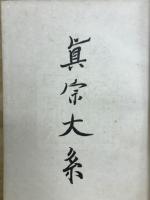 眞宗大系